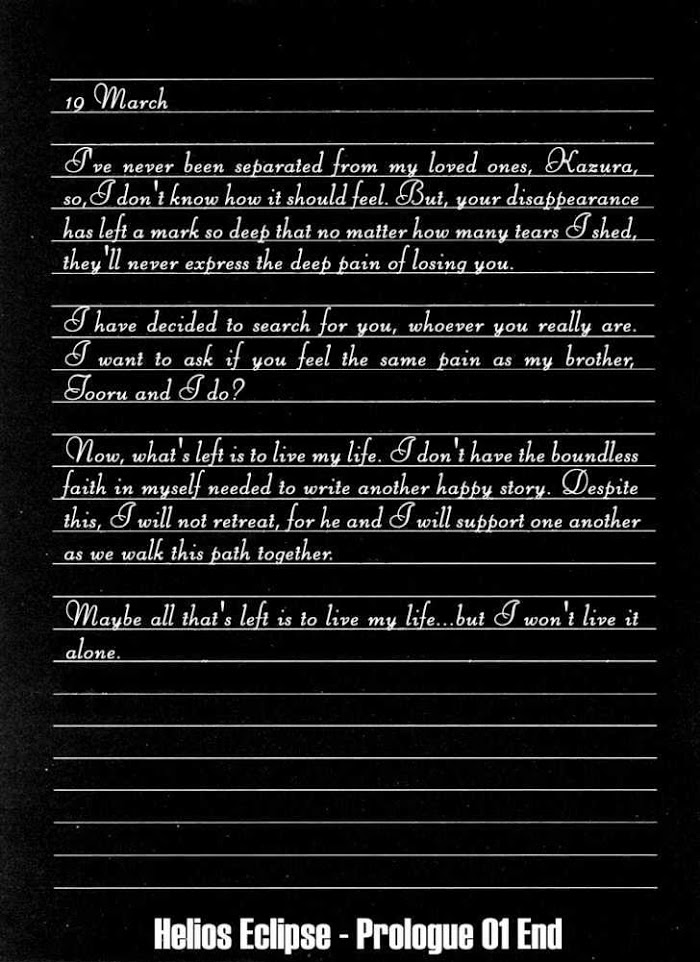 19 March
I've never been separated from my loved ones, Kazura,
so, I don't know how it should feel. But, your disappearance
has left a mark so deep that no matter how many tears I shed,
they'll never express the deep pain of losing you.
I have decided to search for you, whoever you really are.
I want to ask if you feel the same pain as my brother,
Tooru and I do?
Now, what's left is to live my life. I don't have the boundless
faith in myself needed to write another happy story. Despite
this, I will not retreat, for he and I will support one another
as we walk this path together.
Maybe all that's left is to live my life...but I won't live it
alone.
Helios Eclipse - Prologue 01 End